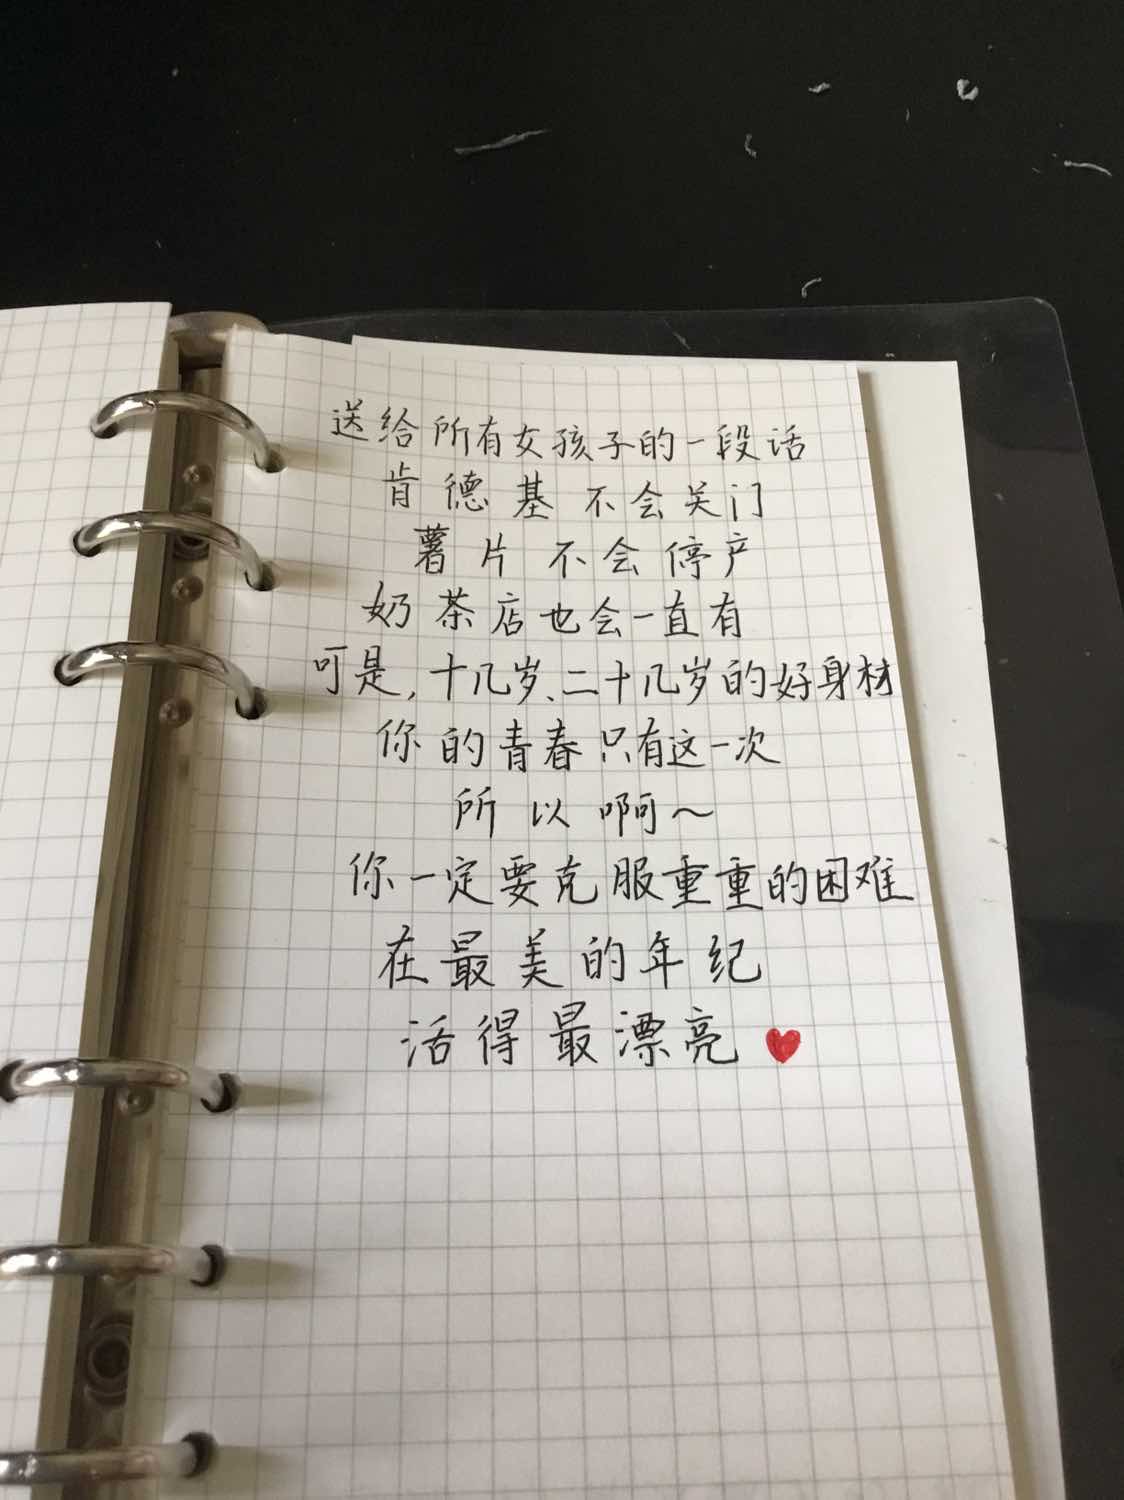 送给所有女孩子的一段话
肯德基不会关门
薯片不会停产
奶茶店也会一直有
可是,十几岁、二十几岁的好身材
你的青春只有这一次
所以啊~
你一定要克服重重的困难
在最美的年纪
活得最漂亮